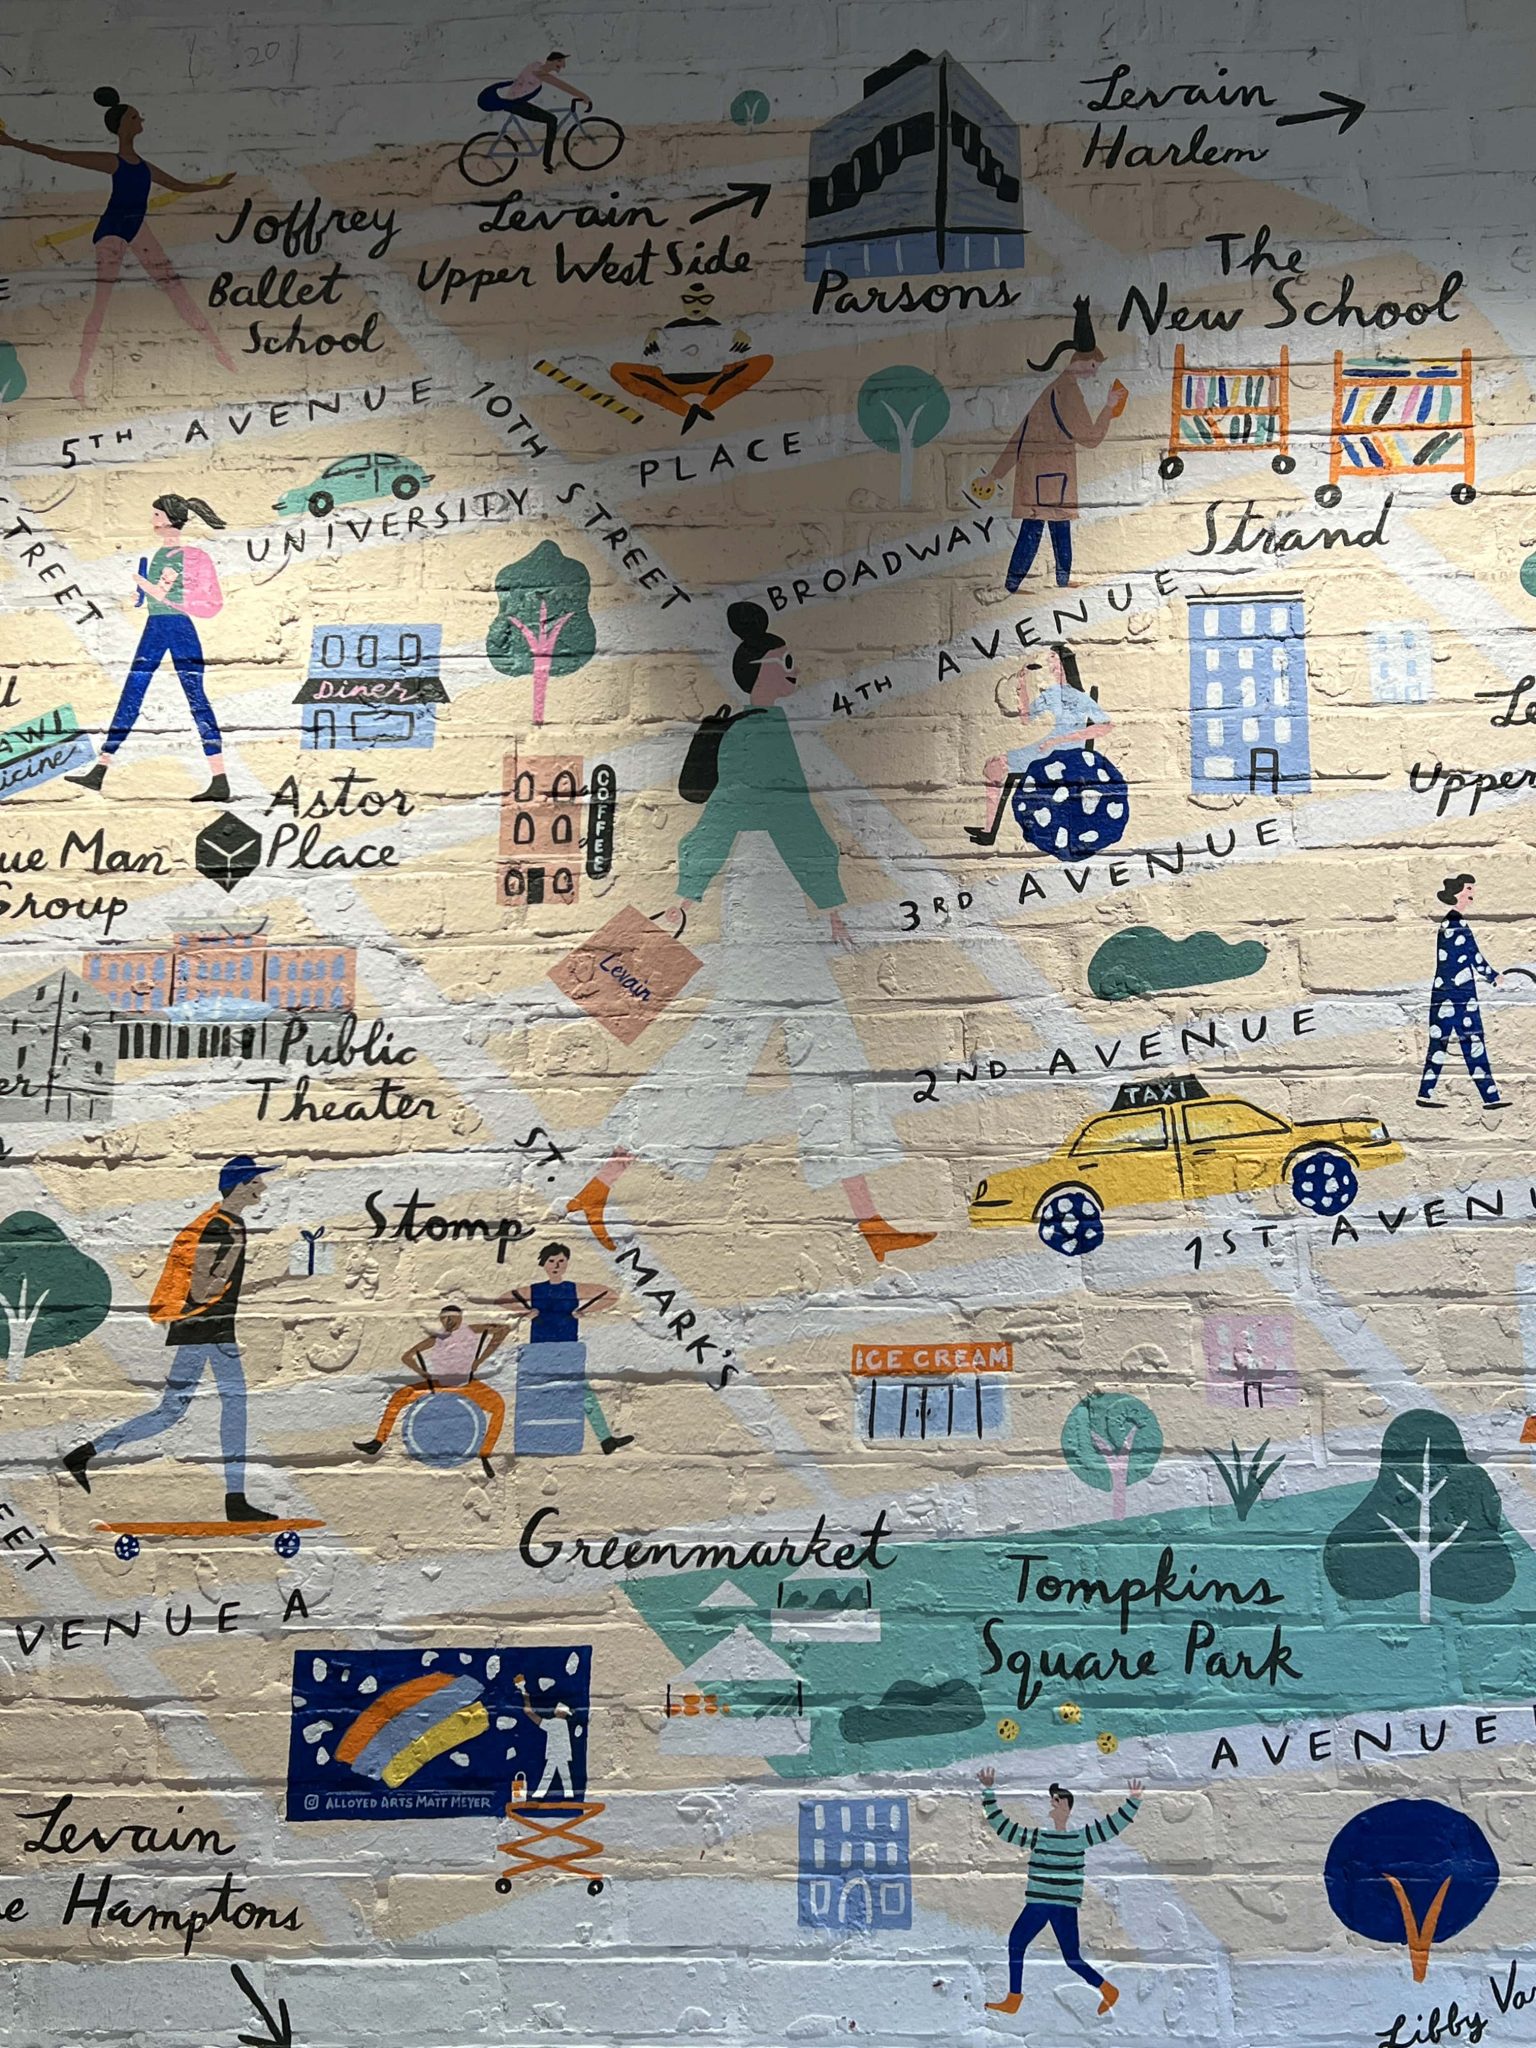 Levain
Harlem
Joffrey
Ballet
School
Levain
Upper West Side
Parsons
The
New School
5TH AVENUE
10TH STREET
UNIVERSITY PLACE
BROADWAY
Strand
4TH AVENUE
Diner
Upper
Astor
Place
COFFEE
Man
Group
3RD AVENUE
Levain
Public
Theater
2ND AVENUE
TAXI
ST. MARK'S
Stomp
1ST AVEN
ICE CREAM
Greenmarket
Tompkins
Square Park
VENUE A
AVENUE
ALLOYED ARTS MATT MEYER
Levain
Hamptons
Libby Va